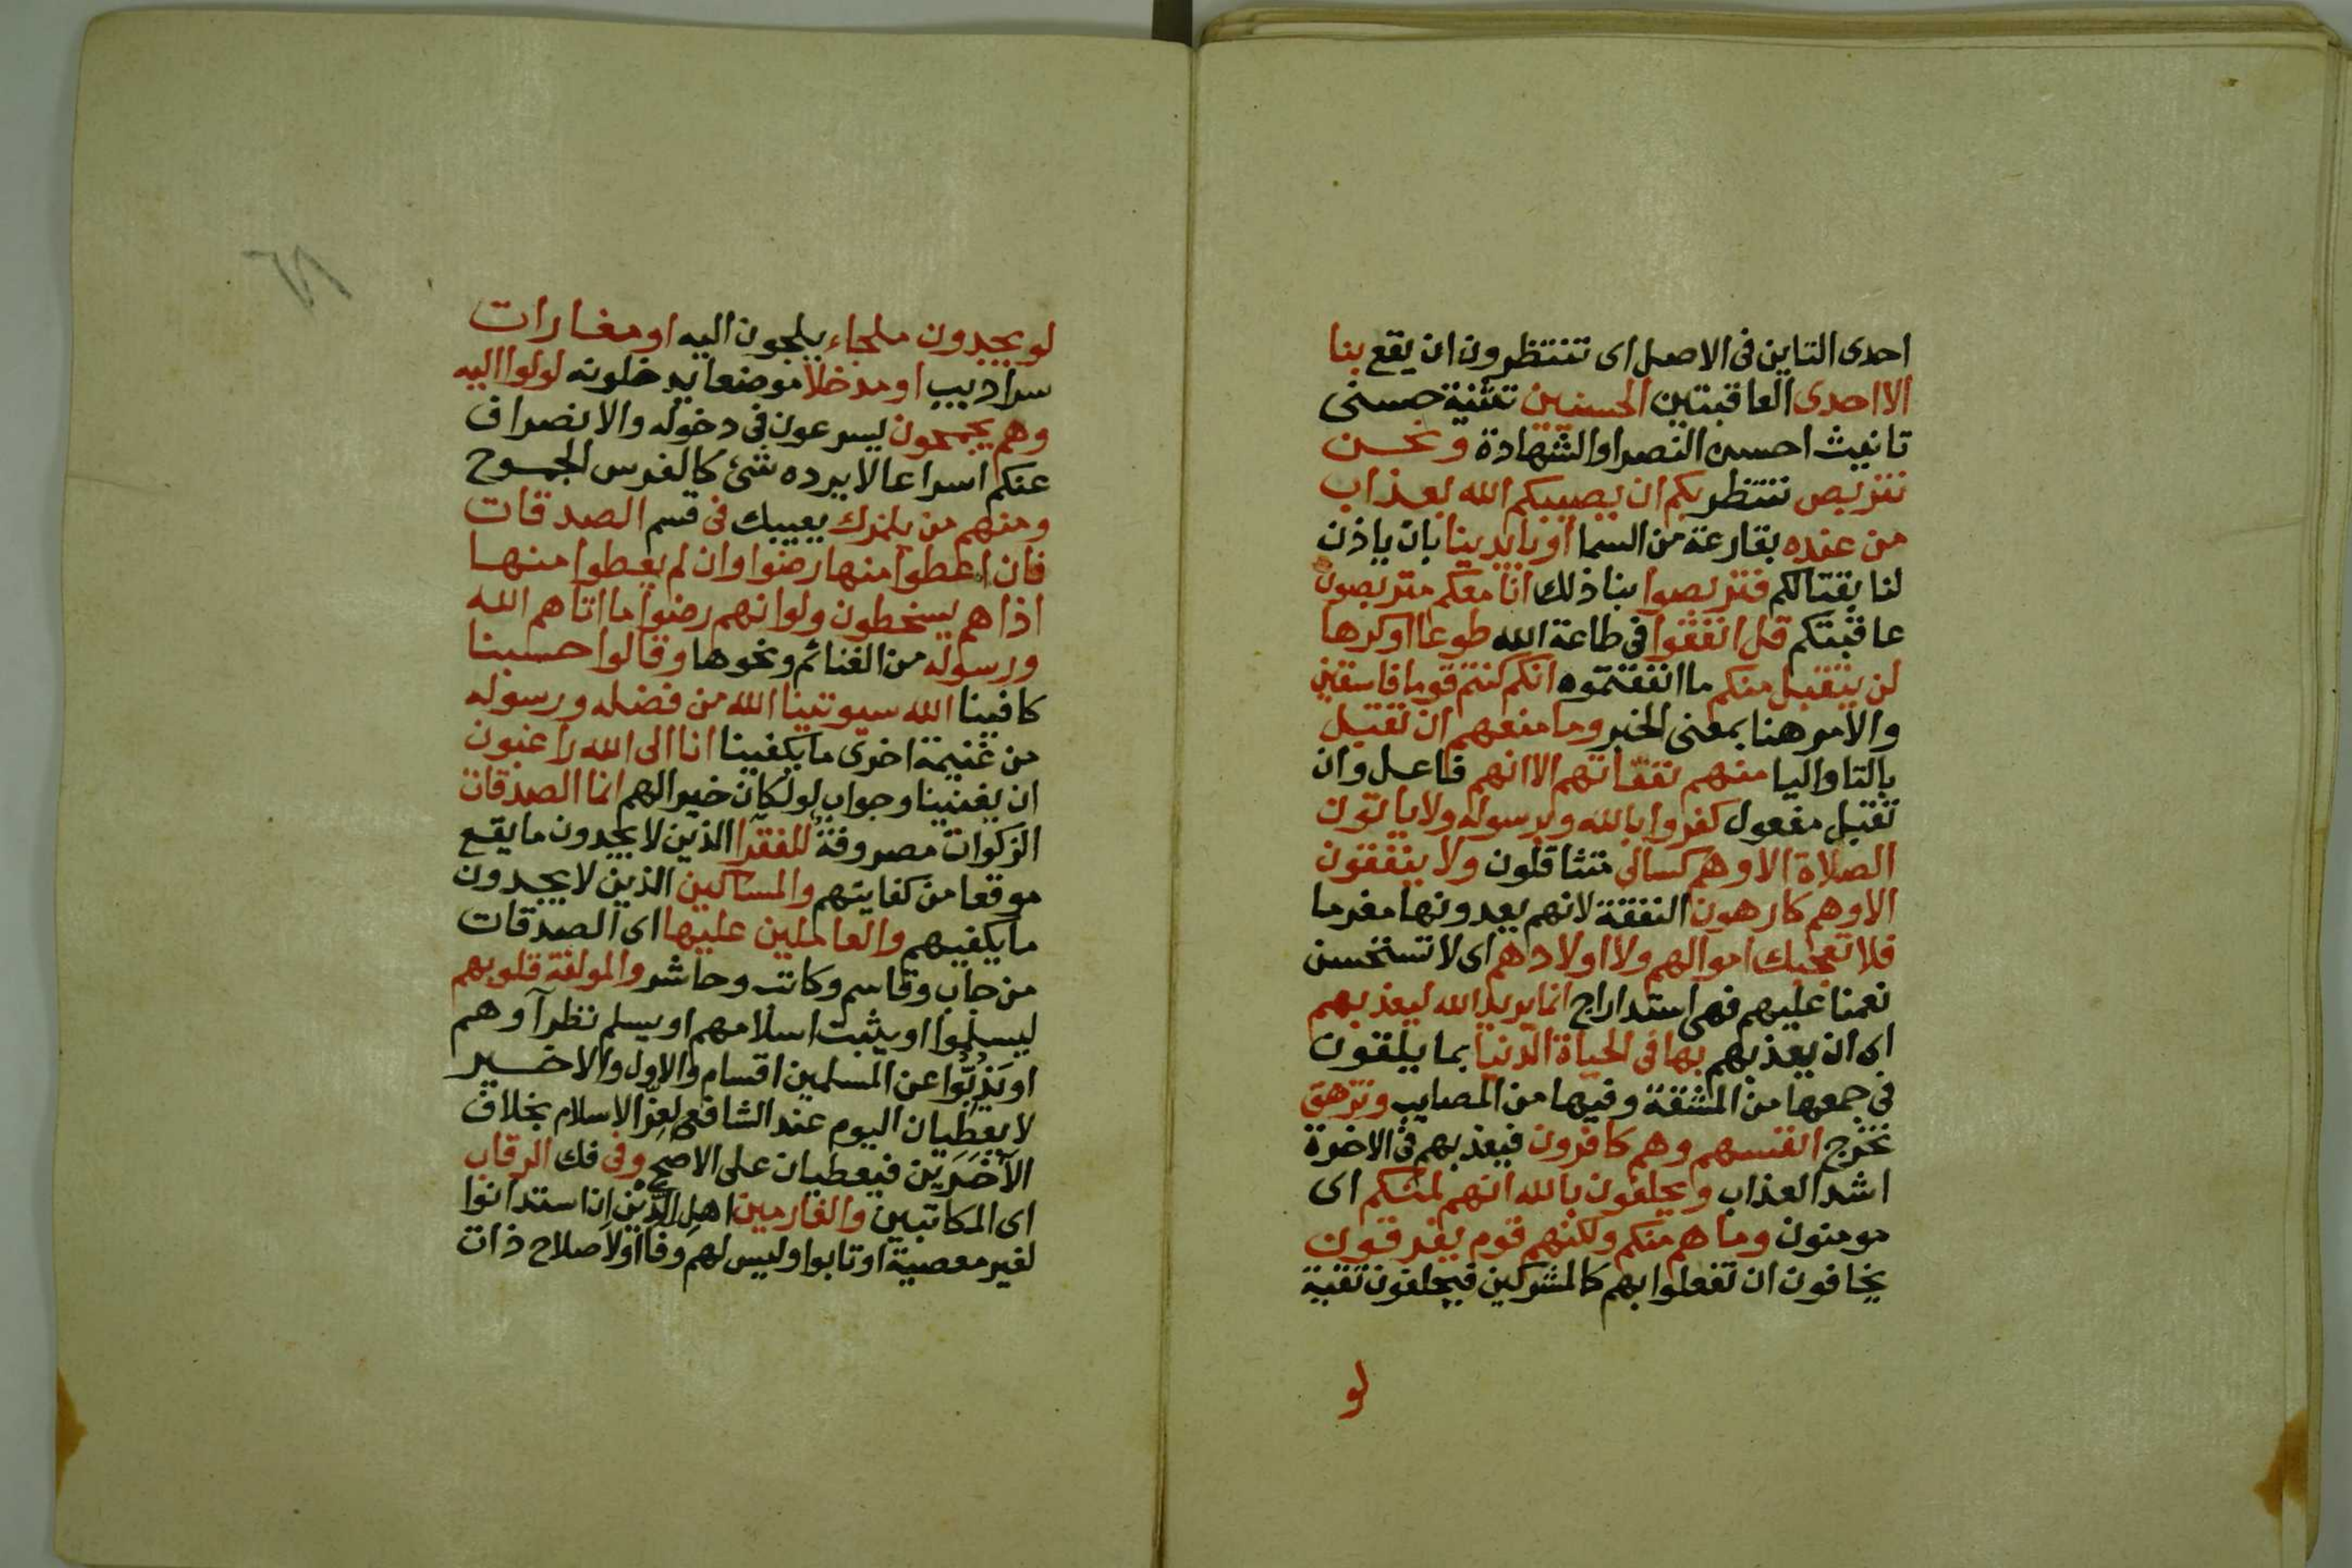 احدى التاين فى الاصل اى تنتظرون ان يقع بنا
الا احدى العاقبتين الحسنيين تثنية حسنى
تانيث احسن النصر او الشهادة ونحن
نتربص ننتظر بكم ان يصيبكم الله بعذاب
من عنده بقارعة من السما او بايدينا بان ياذن
لنا بقتالكم فتربصوا بنا ذلك انا معكم متربصون
عاقبتكم قل انفقوا فى طاعة الله طوعا او كرها
لن يتقبل منكم ما انفقتموه انكم كنتم قوما فاسقين
والامر هنا بمعنى الخبر وما منعهم ان تقبل
بالتا واليا منهم نفقاتهم الا انهم فاعل وان
تقبل مفعول كفروا بالله وبرسوله ولا ياتون
الصلاة الا وهم كسالى متثاقلون ولا ينفقون
الا وهم كارهون النفقة لانهم يعدونها مغرما
فلا تعجبك اموالهم ولا اولادهم اى لا تستحسن
نعمنا عليهم فهى استداراج انما يريد الله ليعذبهم
اى ان يعذبهم بها فى الحياة الدنيا بما يلقون
فى جمعها من المشقة وفيها من المصايب وتزهق
تخرج انفسهم وهم كافرون فيعذبهم فى الاخرة
اشد العذاب ويحلفون بالله انهم لمنكم اى
مومنون وما هم منكم ولكنهم قوم يفرقون
يخافون ان تفعلوا بهم كالمشركين فيحلفون تقية
لو
٦٨
لو يجدون ملجاء يلجون اليه او مغارات
سراديب او مدخلا موضعا يدخلونه لولوا اليه
وهم يجمحون يسرعون فى دخوله والانصراف
عنكم اسراعا لا يرده شئ كالفرس الجموح
ومنهم من يلمزك يعيبك فى قسم الصدقات
فان اعطوا منها رضوا وان لم يعطوا منها
اذا هم يسخطون ولو انهم رضوا ما اتاهم الله
ورسوله من الغنائم ونحوها وقالوا حسبنا
كافينا الله سيوتينا الله من فضله ورسوله
من غنيمة اخرى ما يكفينا انا الى الله راغبون
ان يغنينا وجواب لو لكان خيرا لهم انما الصدقات
الزكوات مصروفة للفقرا الذين لا يجدون ما يقع
موقعا من كفايتهم والمساكين الذين لا يجدون
ما يكفيهم والعاملين عليها اى الصدقات
من جاب وقاسم وكاتب وحاشر والمولفة قلوبهم
ليسلموا او يثبت اسلامهم او يسلم نظراوهم
او يَذُبُّوا عن المسلمين اقسام والاول والاخير
لا يعطيان اليوم عند الشافعى لعز الاسلام بخلاف
الآخَرَيْن فيعطيان على الاصح وفى فك الرقاب
اى المكاتبين والغارمين اهل الدَّيْن ان استدانوا
لغير معصية او تابوا وليس لهم وفا او لاصلاح ذات